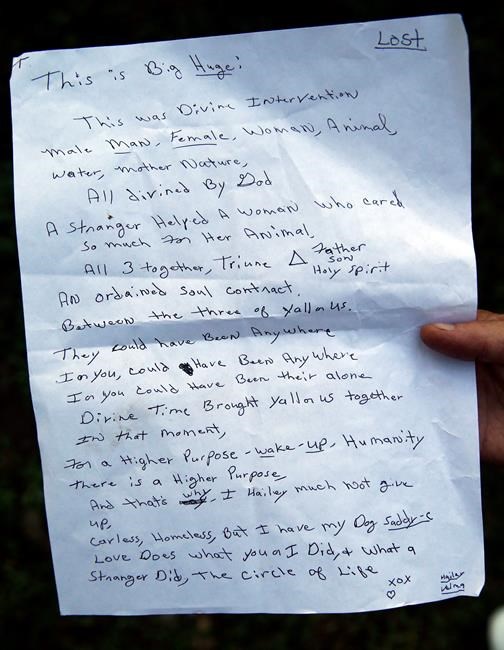 LOST
This is Big Huge:
This was Divine Intervention
male Man, Female, Woman, Animal,
Water, Mother Nature,
All divined By God
A Stranger Helped A Woman who cared
so much For Her Animal,
All 3 together, Triune △ Father
Son
Holy Spirit
An ordained Soul contract.
Between the three of yall or us.
They could have Been Anywhere
I or you, could Have Been Anywhere
I or you could Have Been their alone
Divine Time Brought yall or us together
In that moment,
For a Higher Purpose - wake-up - Humanity
there is a Higher Purpose,
And that's why, I Hailey much not give
up,
Carless, Homeless, But I have my Dog Saddy-c
Love Does what you or I Did, & what a
Stranger Did, The circle of Life
xox
♡
Hailey